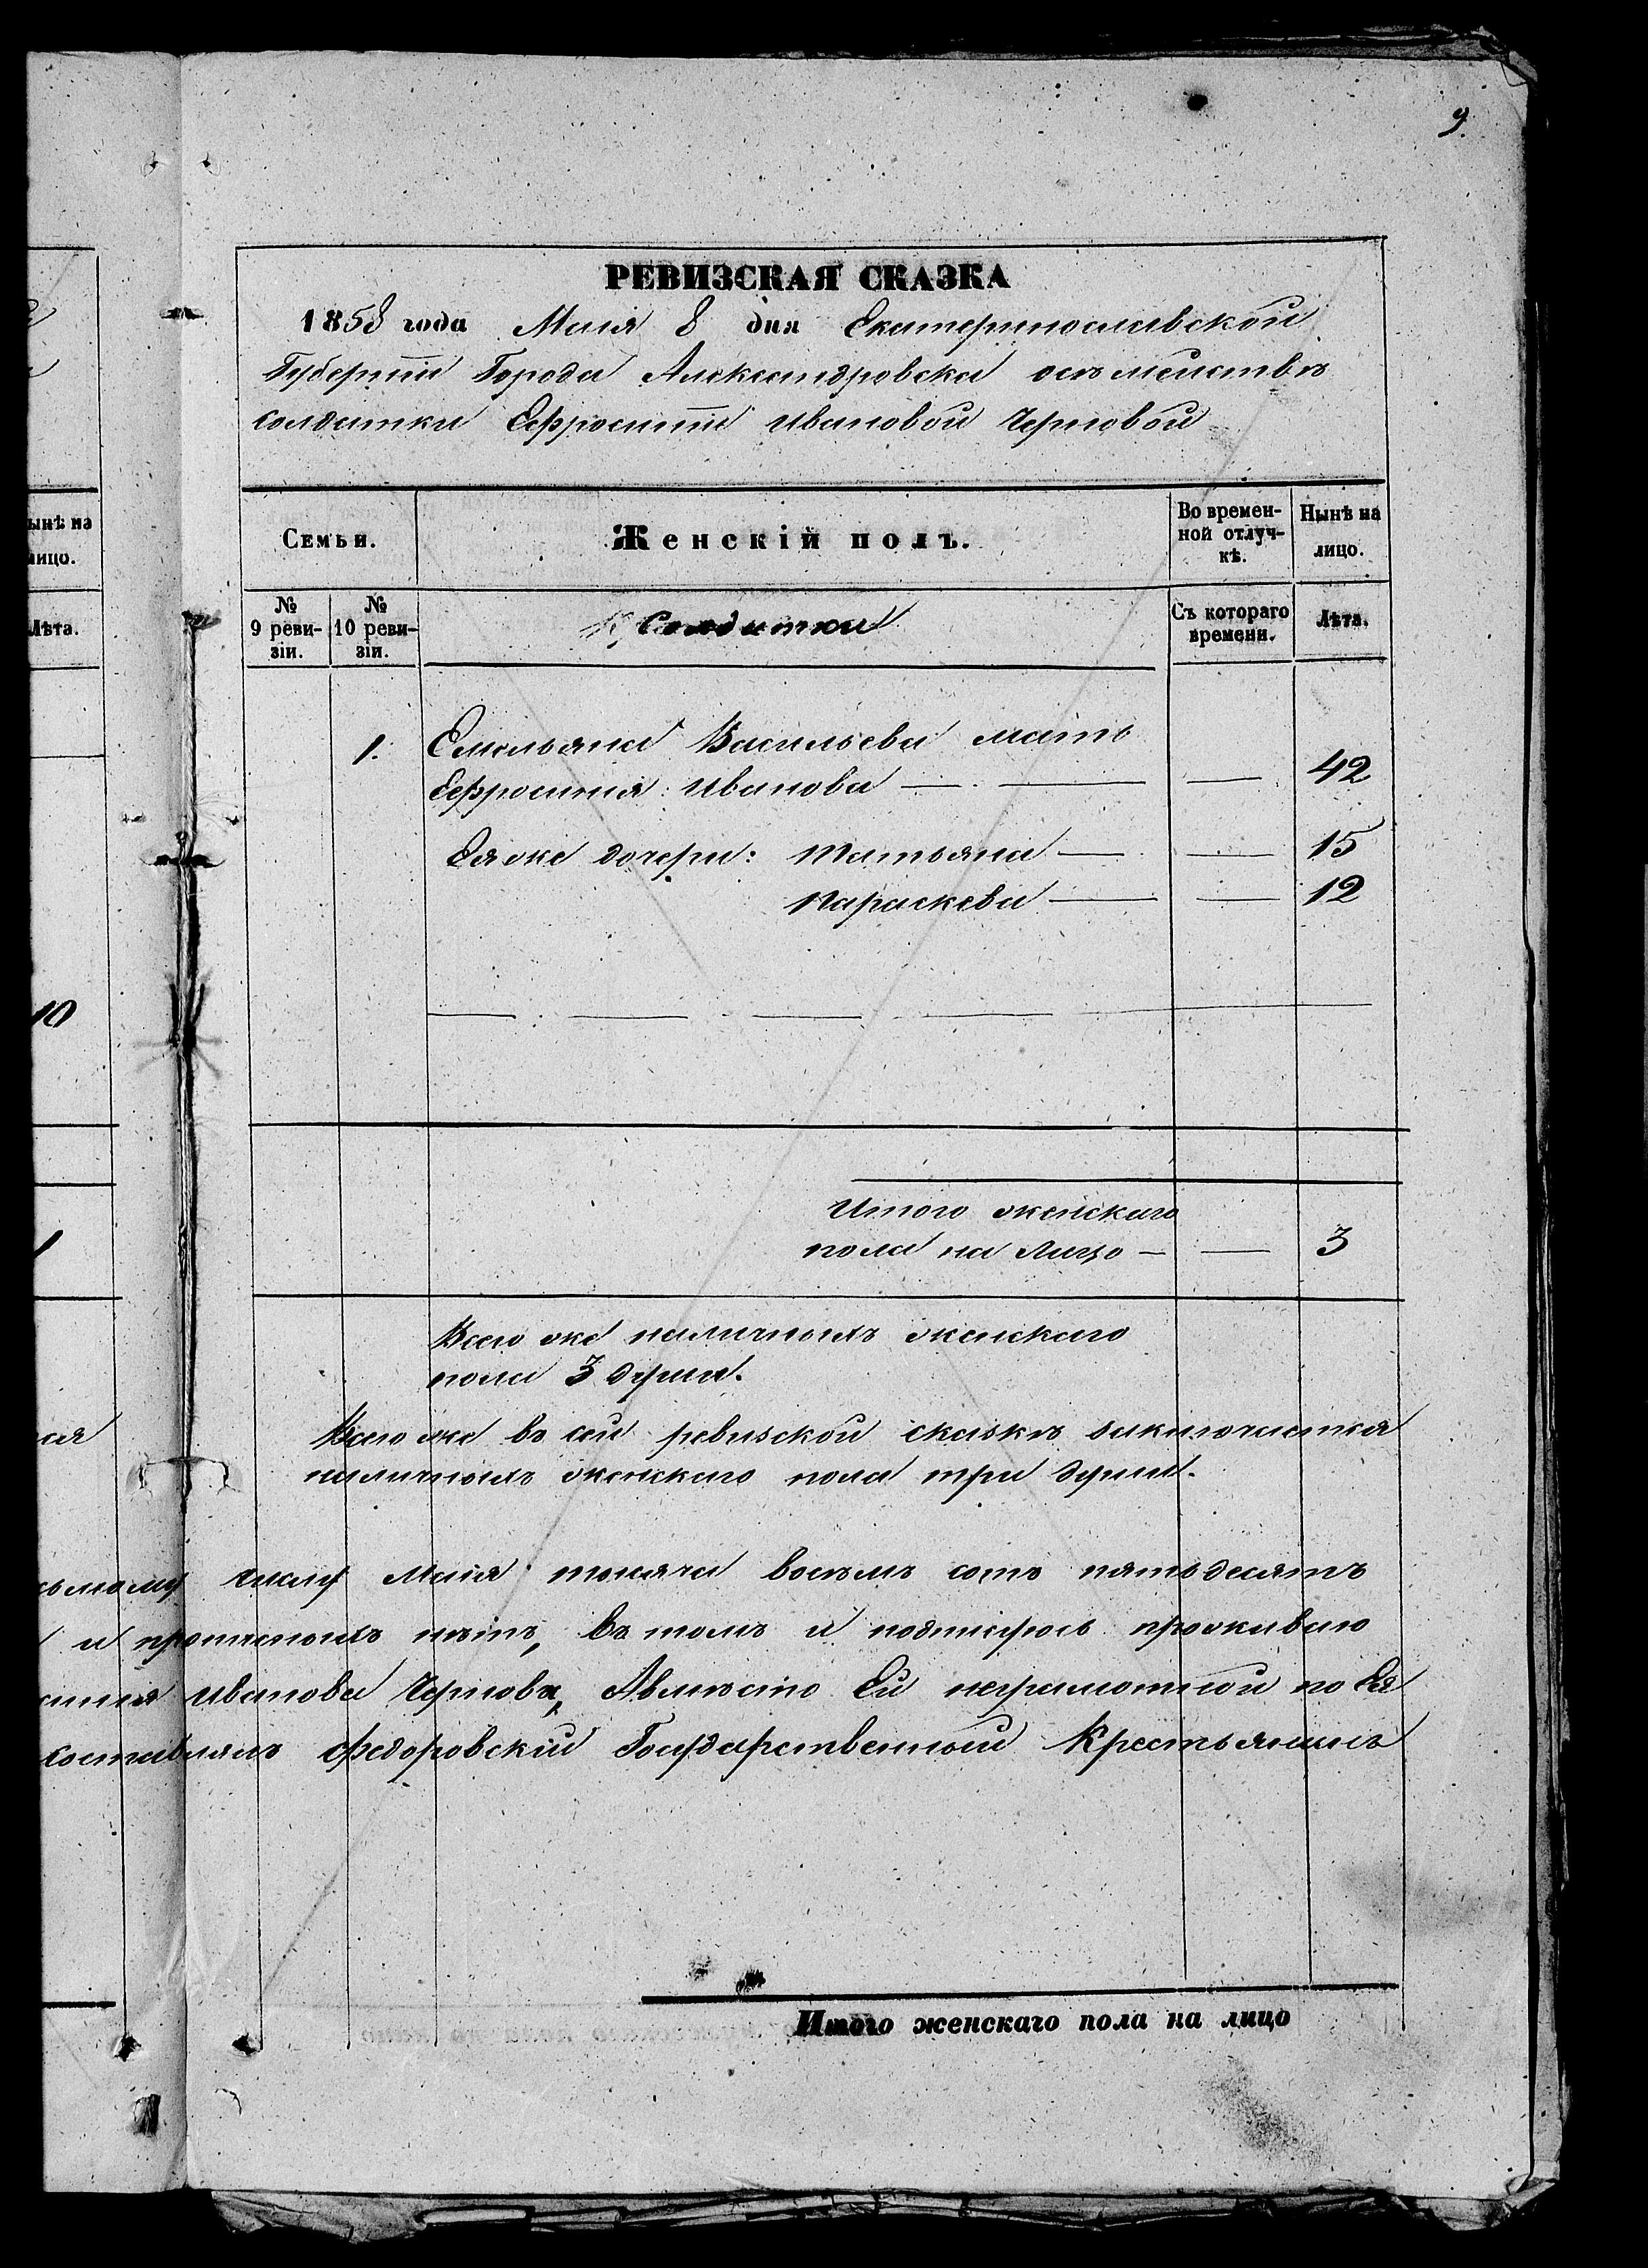 9.
РЕВИЗСКАЯ СКАЗКА
1858 года Маія 8 дня Екатеринославской
Губерніи Города Александровска осѣмействѣ
солдатки Ефросиніи Ивановой Черновой
ынѣ на
лицо.
Лѣта.
Семьи.
Женскій полъ.
Во времен-
ной отлуч-
кѣ.
Нынѣ на
лицо.
№
9 реви-
зіи.
№
10 реви-
зіи.
Солдатки
Съ котораго
времени.
Лѣта.
1. Емельяна Васильева мать
Ефросинія Иванова — — — 42
Ея же дочери: Татьяна — — 15
Параскева — — 12
10
Итого женскаго
пола на лицо — — 3
1
Всего же наличныхъ женскаго
пола 3 души.
Всего же въ сей ревизской сказкѣ заключается
наличныхъ женскаго пола три души.
ьмому числу Маія тысяча восемъ сотъ пятьдесятъ
и прописныхъ нѣтъ, въ томъ и подписуюсь проживаю
синия Иванова Чернова, Авмѣсто Ей неграмотной по Ея
составлялъ Федоровскій Государственный Крестьянинъ
Итого женскаго пола на лицо